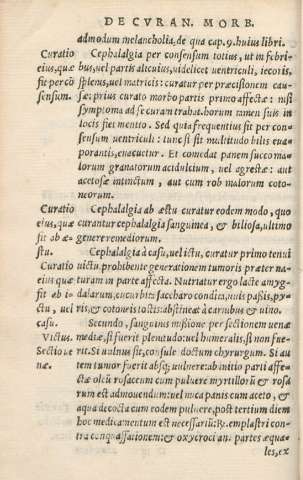 DE CVRAN. MORB.
admodum melancholia, de qua cap. 9. huius libri.
Curatio Cephalalgia per consensum totius, ut in febri-
eius, quæ bus, uel partis alicuius, uidelicet uentriculi, iecoris,
fit per cõ splenis, uel matricis: curatur per præcisionem cau-
sensum. sæ: prius curato morbo partis primo affectæ: nisi
symptoma ad se curam trahat. horum tamen suis in
locis fiet mentio. Sed quia frequentius fit per con-
sensum uentriculi: tunc si sit multitudo bilis eua-
porantis, euacuetur. Et comedat panem succo ma-
lorum granatorum acidulcium, uel agrestæ: aut
acetosæ intinctum, aut cum rob malorum coto-
neorum.
Curatio Cephalalgia ab æstu curatur eodem modo, quo
eius, quæ curantur cephalalgia sanguinea, & biliosa, ultimo
fit ab æ- genere remediorum.
stu. Cephalalgia à casu, uel ictu, curatur primo tenui
Curatio uictu, prohibente generationem tumoris præter na-
eius quæ turam in parte affecta. Nutriatur ergo lacte amyg-
fit ab i- dalarum, cucurbitæ saccharo condita, uuis passis, pyr-
ctu, uel ris, & cotoneis tostis: abstineat à carnibus & uino.
casu. Secundo, sanguinis missione per sectionem uenæ
Victus. mediæ, si fuerit plenitudo: uel humeralis, si non fue-
Sectio ue rit. Si uulnus sit, consule doctum chyrurgum. Si au
næ. tem tumor fuerit absq; uulnere: ab initio parti affe-
ctæ oleũ rosaceum cum puluere myrtillorũ & rosa
rum est admouendum: uel mica panis cum aceto, &
aqua decocta cum eodem puluere, post tertium diem
hoc medicamentum est necessariũ: ℞. emplastri con-
tra conquassationem: & oxycroci an. partes æqua-
les, ex